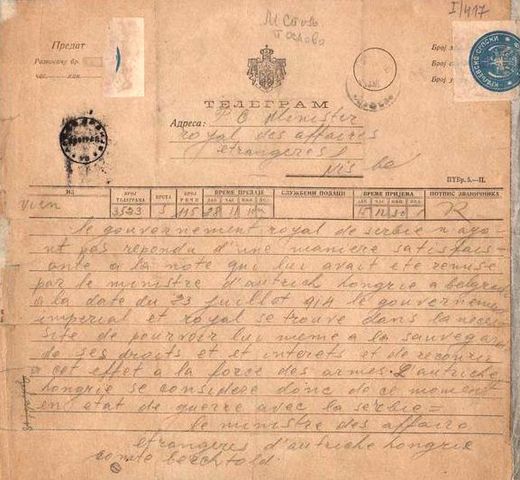 I/417
Предат
ТЕЛЕГРАМ
Адреса: P O Minister
royal des affaires
etrangeres
Nis
ИЗ
БРОЈ ТЕЛЕГРАМА
ВРСТА
БРОЈ РЕЧИ
ВРЕМЕ ПРЕДАЈЕ
СЛУЖБЕНИ ПОДАЦИ
ВРЕМЕ ПРИЈЕМА
ПОТПИС ЗВАНИЧНИКА
3523
115 28 11
le gouvernement royal de serbie n aya
nt pas repondu d'une maniere satisfais
ante a la note qui lui avait ete remise
par le ministre d'autrich hongrie a belgra
a la date du 23 juillot 914 le gouvernemen
imperial et royal se trouve dans la nece
ssite de pourvoir lui meme a la sauvega
de ses droits et et interets et de recourir
a cet effet a la force des armes L'autriche
hongrie se considere donc de ce moment
en etat de guerre avec la serbie =
le ministre des affaire
etrangeres d'autriche hongrie
comte berchtold